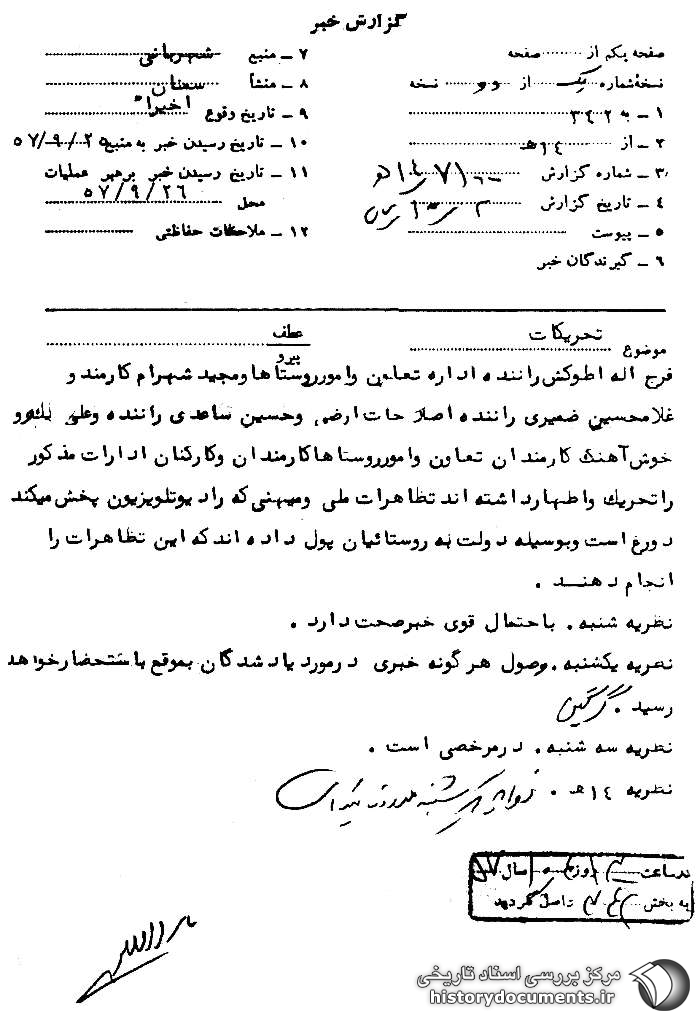 گزارش خبر
صفحه یکم از صفحه
نسخهٔ شماره یک از دو نسخه
۱ ـ به ۳۴۲
۲ ـ از ۱۴هـ
۳ ـ شماره گزارش
۴ ـ تاریخ گزارش
۵ ـ پیوست
۶ ـ گیرندگان خبر
۷ ـ منبع شهربانی
۸ ـ منشأ سمنان
۹ ـ تاریخ وقوع اخیراً
۱۰ ـ تاریخ رسیدن خبر به منبع ۵۷/۹/۲۵
۱۱ ـ تاریخ رسیدن خبر برهبر عملیات
محل ۵۷/۹/۲۶
۱۲ ـ ملاحظات حفاظتی
موضوع تحریکات
عطف
پیرو
فرج اله اطوکش راننده اداره تعاون وامورروستاها ومجید شهرام کارمند و
غلامحسین ضمیری راننده اصلاحات ارضی وحسین ساعدی راننده وعلی نیکرو
خوش‌آهنگ کارمندان تعاون وامورروستاها کارمندان وکارکنان ادارات مذکور
را تحریک واظهارداشته اند تظاهرات ملی ومیهنی که رادیوتلویزیون پخش میکند
دورغ است وبوسیله دولت به روستائیان پول داده اند که این تظاهرات را
انجام دهند .
نظریه شنبه . باحتمال قوی خبرصحت دارد .
نظریه یکشنبه . وصول هرگونه خبری درمورد یادشدگان بموقع باستحضارخواهد
رسید . گرگین
نظریه سه شنبه . درمرخصی است .
نظریه ۱۴هـ .
در ساعت روز سال
به بخش واصل گردید
مرکز بررسی اسناد تاریخی
historydocuments.ir